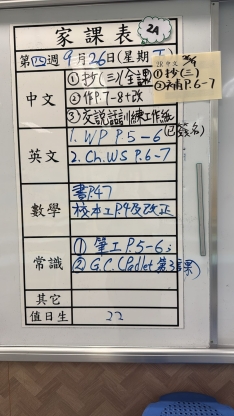 家課表
24
第四週9月26日(星期五)
中文
①抄(三)(全課)
②作P.7-8+改
③交說話訓練工作紙
2B 中文
①抄(三)
②補P.6-7
英文
1. WP P5-6 (已簽名)
2. Ch.WS P.6-7
數學
書P.47
校本工P.4及改正
常識
① 筆工P.5-6;
② G.C.(Padlet 第3課)
其它
值日生
22